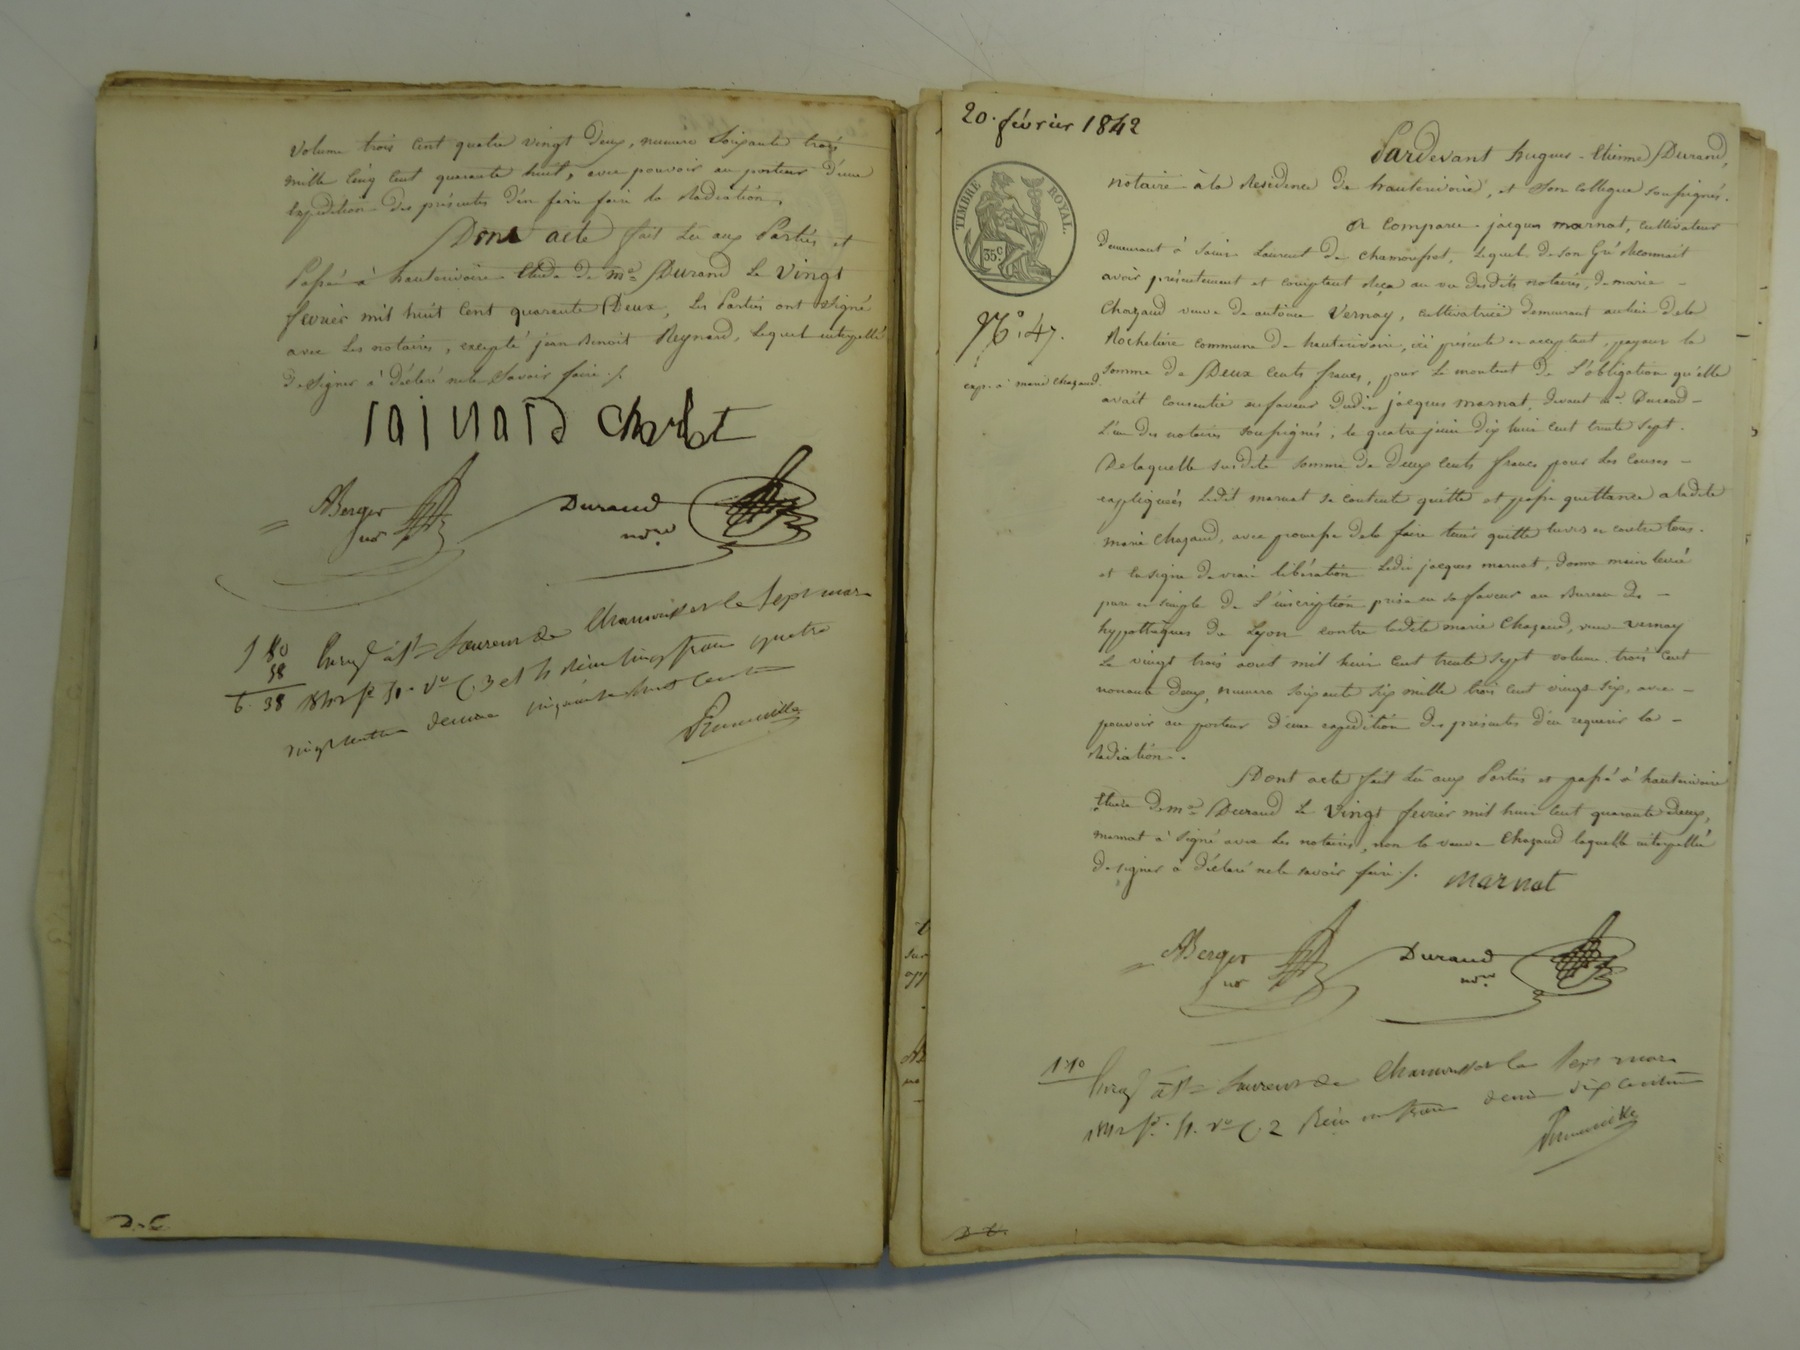 volume trois cent quatre vingt deux, numéro soixante trois
mille cinq cent quarante huit, avec pouvoir au porteur d'une
expédition des présentes d'en faire faire la Radiation.
Dont acte fait Lu aux Parties et
Passé à hauterivoire Etude de me Durand Le Vingt
fevrier mil huit Cent quarante Deux, Les Parties ont signé
avec Les notaires, excepté jean Benoit Reynard, Lequel interpellé
de signer à Déclaré ne le Savoir faire ./.
rainard Charlot
ABerger
nre
Durand
nore
5 80
58
6. 38
Enregé à St Laurent de Chamousset le sept mars
1842 fo 51. Vo C. 3 et 4 Reçu cinq francs quatre
vingt centimes decime cinquante huit centimes
D. C.
20. février 1842
TIMBRE ROYAL.
35 c.
No. 47.
exp. à marie Chazaud.
Pardevant hugues-Etienne Durand,
notaire à la Residence de hauterivoire, et Son collègue soussignés.
A Comparu jacques marnat, cultivateur
demeurant à Saint Laurent de chamousset, Lequel de son Gré Reconnait
avoir présentement et comptant Reçu au vu desdits notaires, de marie
Chazaud veuve de antoine Vernay, cultivatrice demeurant au lieu dela
Rochetière commune de hauterivoire, ici présente et acceptant, payant la
somme de Deux Cents francs, pour Le montant de L'obligation qu'elle
avait Consentie en faveur dudit jacques marnat, devant me. Durand
L'un des notaires soussignés, le quatre juin dix huit cent trente sept.
De laquelle susdite somme de deux cents francs pour les causes
expliquées Ledit marnat se contente quitte et passe quittance a ladite
marie Chazaud, avec promesse dela faire tenir quitte envers et contre tous.
et en signe de vraie libération Ledit jacques marnat, donne main levée
pure et simple de L'inscription prise en sa faveur au Bureau des
hypothèques de Lyon contre ladite marie Chazaud, veuve Vernay
Le vingt trois aout mil huit cent trente sept volume trois cent
nonante deux, numero soixante six mille trois cent vingt six, avec
pouvoir au porteur d'une expédition des présentes d'en requerir la
Radiation.
Dont acte fait Lu aux Parties et passé à hauterivoire
Etude de me Durand Le Vingt fevrier mil huit cent quarante deux,
marnat à signé avec Les notaires, non la veuve Chazaud laquelle interpellée
de signer à Déclaré ne le savoir faire ./. marnat
ABerger
nre
Durand
nore
1.10
Enregé à St Laurent de Chamousset le sept mars
1842 fo. 51. Vo C. 2 Reçu un franc decime dix centimes
D. C.